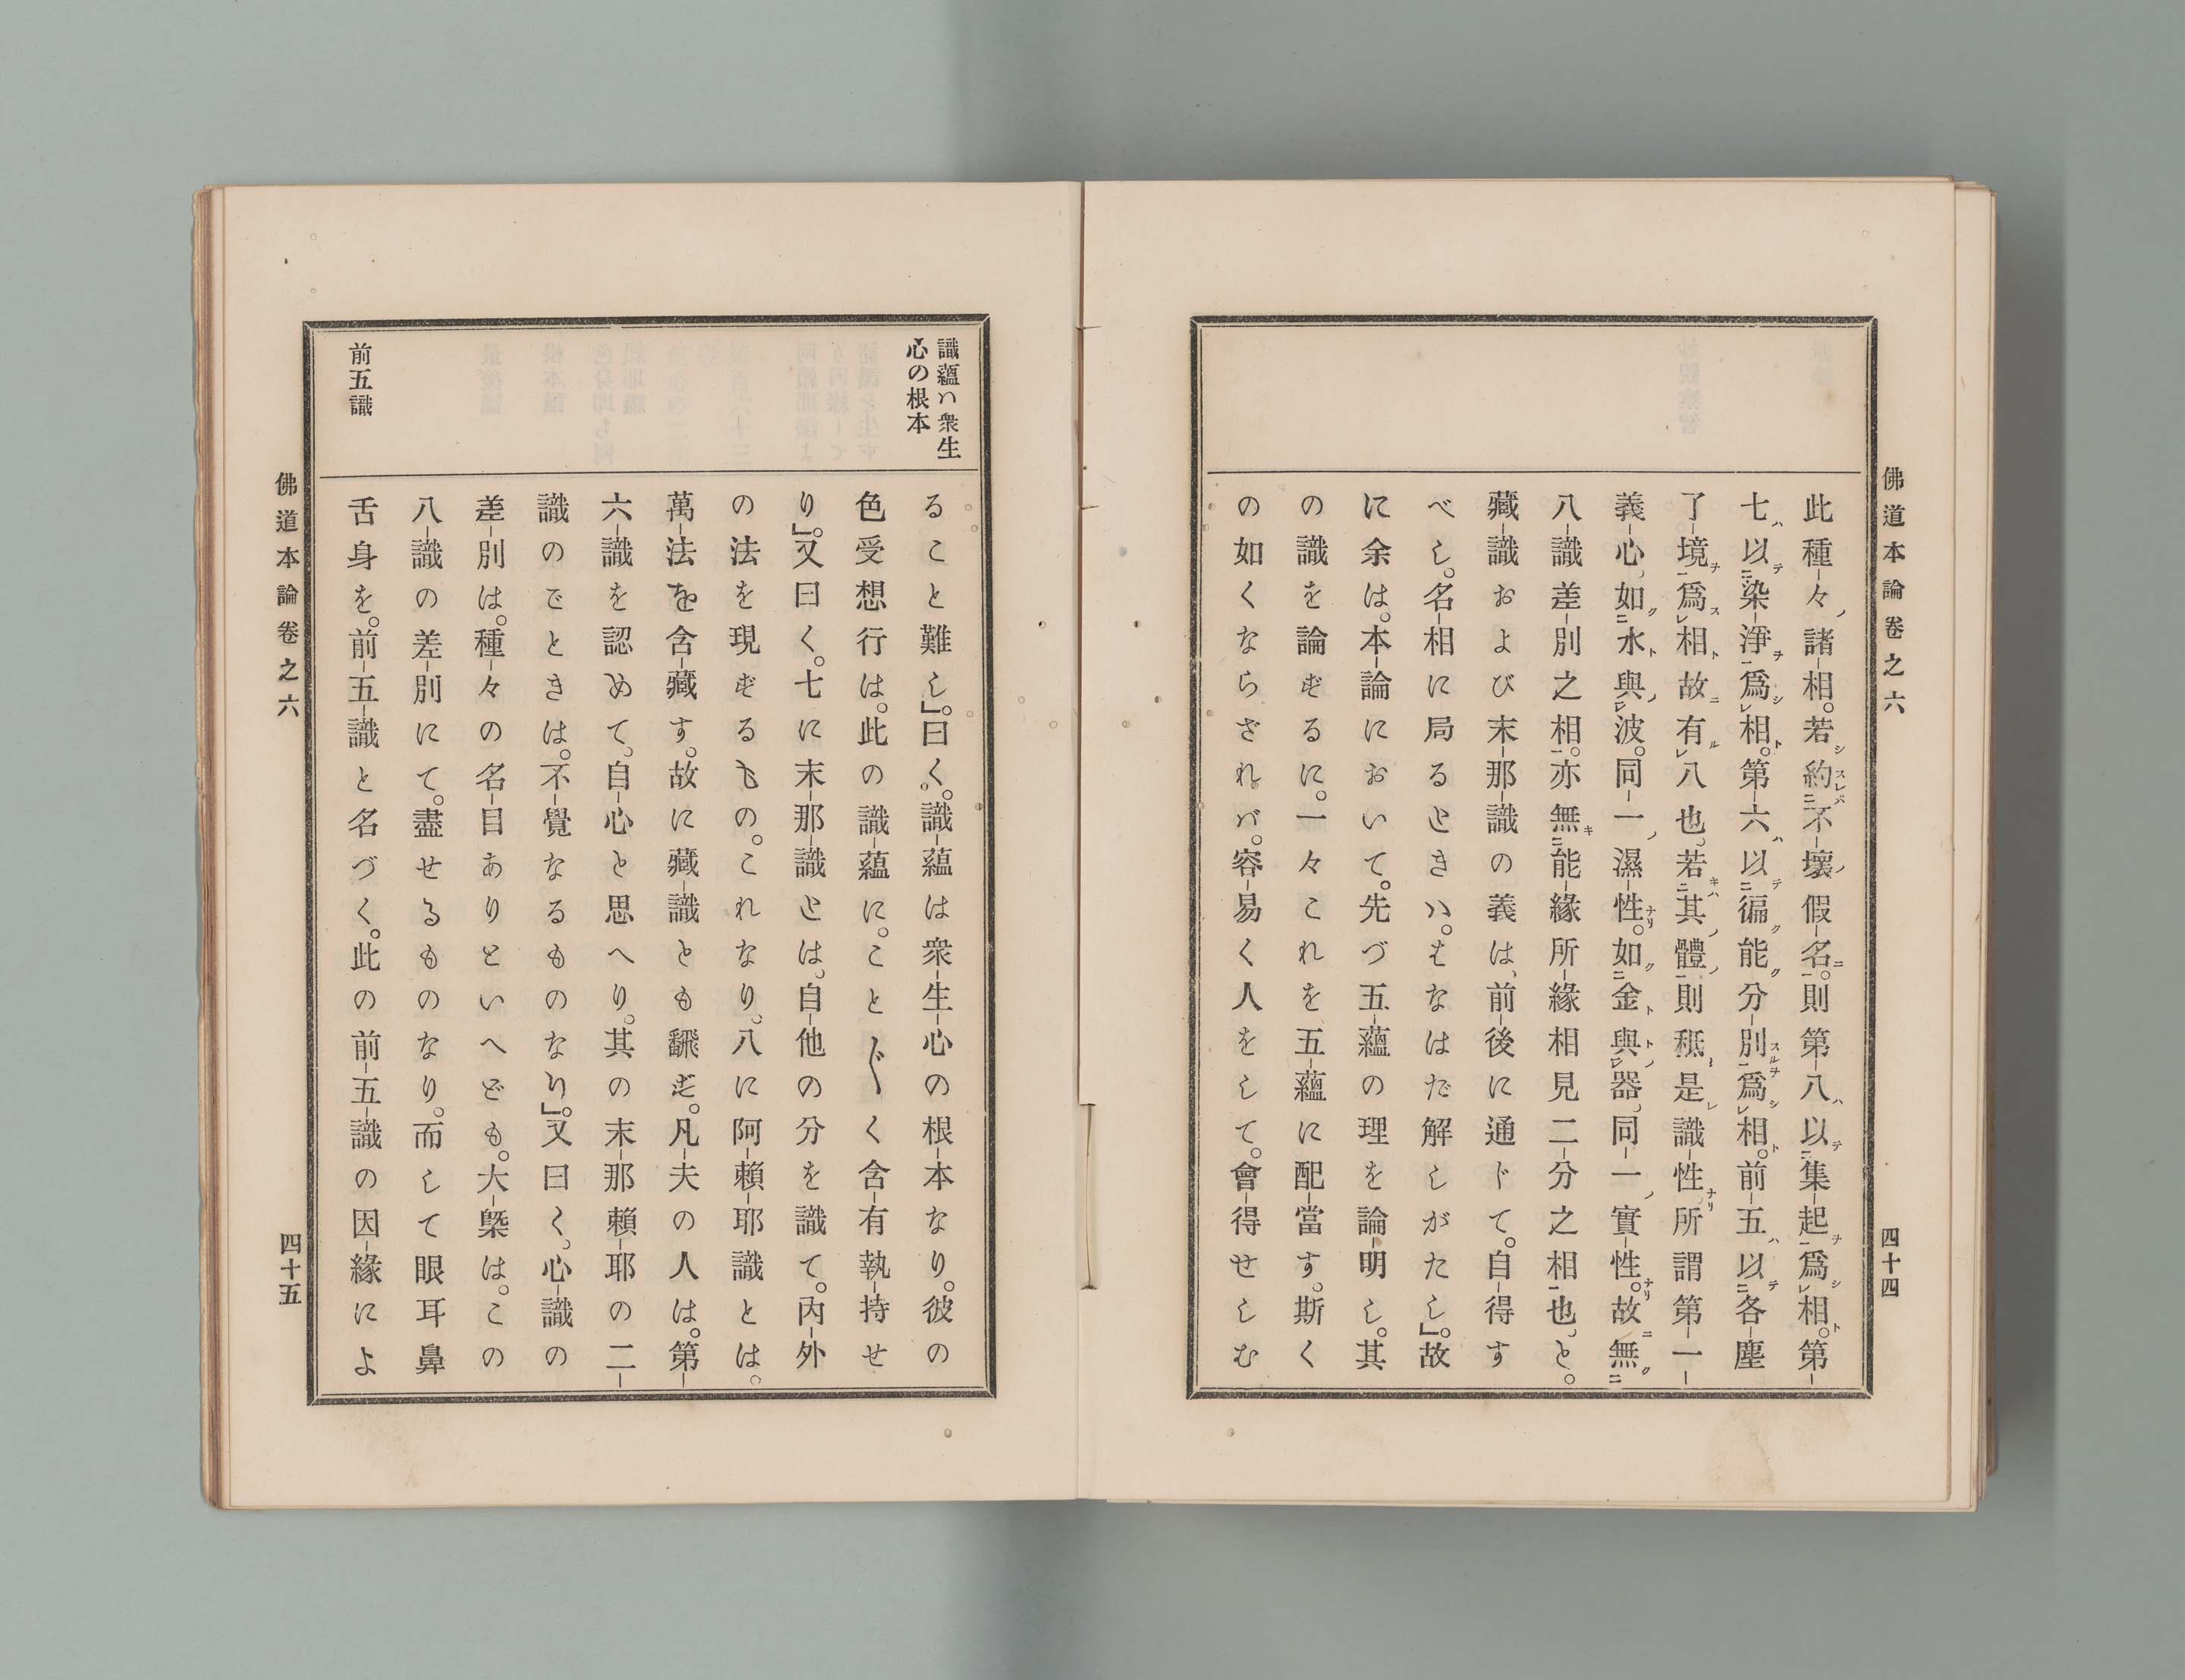 佛道本論卷之六
四十四
此種々諸相。若約不壞假名。則第八以集起爲相。第
七以染淨爲相。第六以徧能分別爲相。前五以各塵
了境爲相故有八也、若其體則秪是識性、所謂第一
義心、如水與波。同一濕性。如金與器、同一實性。故無
八識差別之相。亦無能緣所緣相見二分之相也、と。
藏識および末那識の義は、前後に通じて。自得す
べし。名相に局るときハ。もなはだ解しがたし」。故
に余は。本論において。先づ五蘊の理を論明し。其
の識を論ずるに。一々これを五蘊に配當す。斯く
の如くならざれバ。容易く人をして。會得せしむ
識蘊ハ衆生
心の根本
前五識
ること難し」。曰く。識蘊は衆生心の根本なり。彼の
色受想行は。此の識蘊に。こと〴〵く含有執持せ
り」。又曰く。七に末那識とは、自他の分を識て。内外
の法を現ずるもの。これなり。八に阿賴耶識とは。
萬法を含藏す。故に藏識とも飜ず。凡夫の人は。第
六識を認めて、自心と思へり。其の末那賴耶の二
識のごときは。不覺なるものなり」。又曰く、心識の
差別は。種々の名目ありといへども。大槩は。この
八識の差別にて。盡せるものなり。而して眼耳鼻
舌身を。前五識と名づく。此の前五識の因緣によ
佛道本論卷之六
四十五